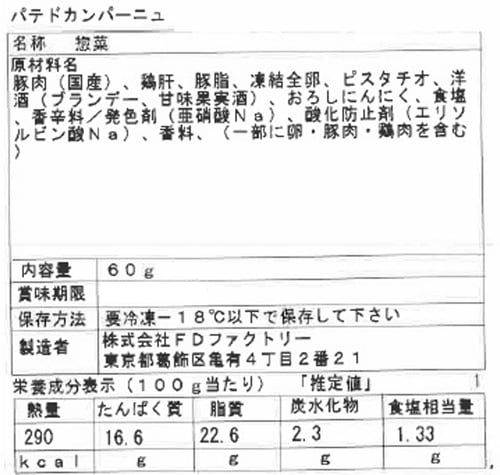 パテドカンパーニュ
名称 惣菜
原材料名
豚肉（国産）、鶏肝、豚脂、凍結全卵、ピスタチオ、洋
酒（ブランデー、甘味果実酒）、おろしにんにく、食塩
、香辛料／発色剤（亜硝酸Ｎａ）、酸化防止剤（エリソ
ルビン酸Ｎａ）、香料、（一部に卵・豚肉・鶏肉を含む
）
内容量 ６０ｇ
賞味期限
保存方法 要冷凍－１８℃以下で保存して下さい
製造者 株式会社ＦＤファクトリー
東京都葛飾区亀有４丁目２番２１
栄養成分表示（１００ｇ当たり） 「推定値」 1
熱量 たんぱく質 脂質 炭水化物 食塩相当量
290 16.6 22.6 2.3 1.33
ｋｃａｌ ｇ ｇ ｇ ｇ